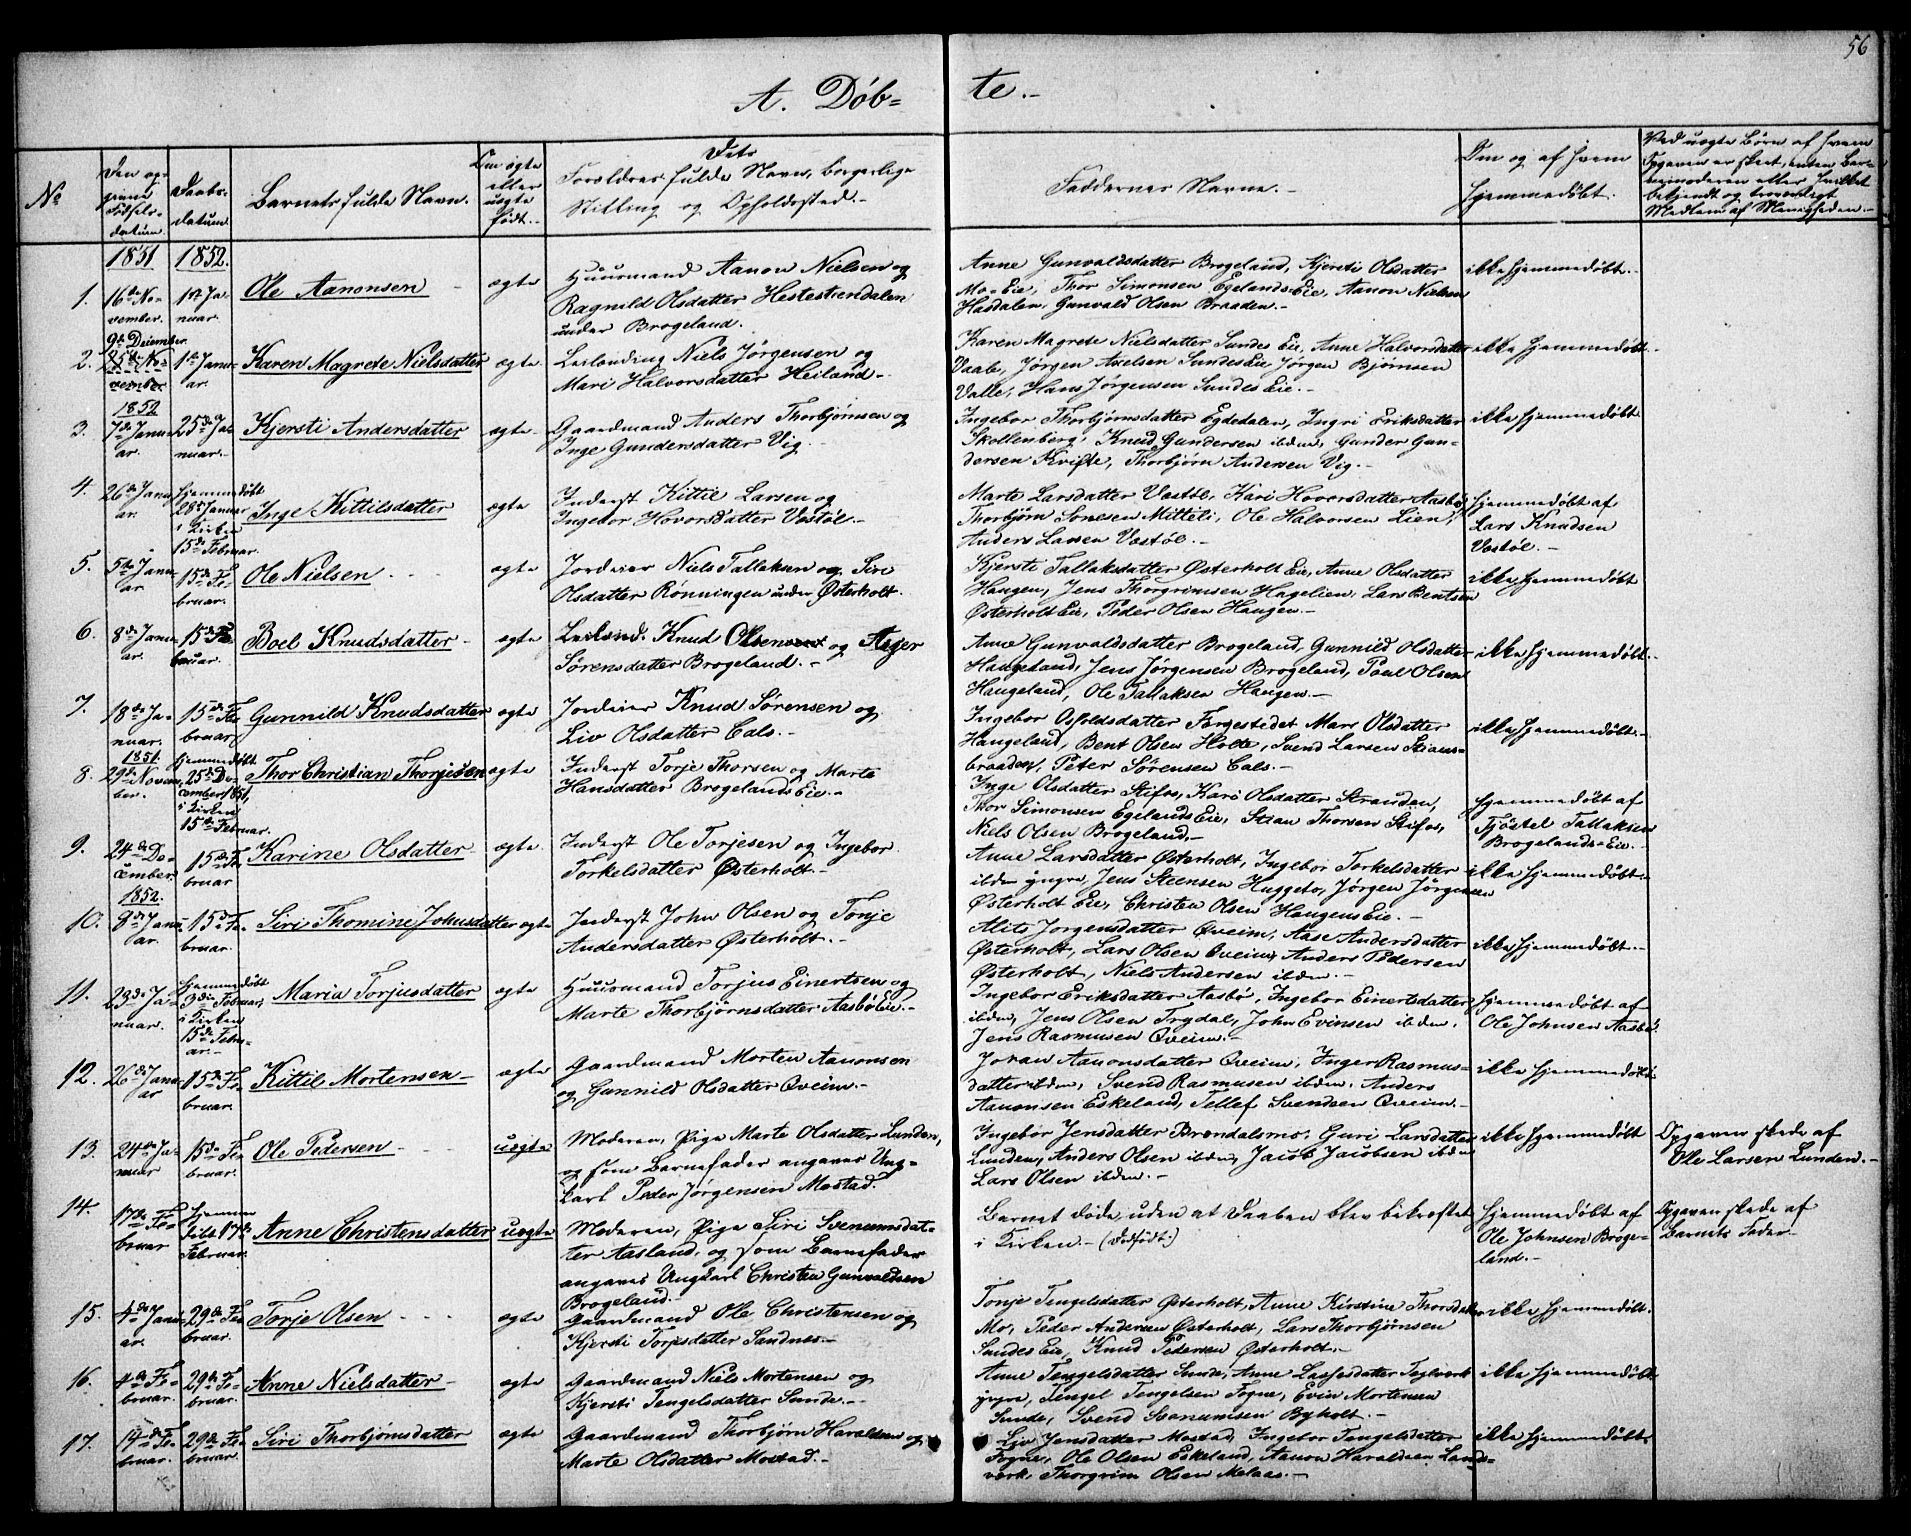 56
A. Døb= te.-
No
Den op-
givne
Fødsels-
datum.
Daabs-
datum.
Barnets fulde Navn.
Om ægte
eller
uægte
født.-
Dets
Forældres fulde Navn, borgerlige
Stilling og Opholdssted.-
Faddernes Navne.-
Om og af hvem
hjemmedøbt.
Ved uægte Børn af hvem
Opgaven er skeet, enten Bar-
nemoderen eller hvilket
bekjendt og troværdigt
Medlem af Menigheden.-
1851. 1852.
1.
16de No-
vember.
1ste Ja-
nuar.
Ole Aanonsen
ægte
Huusmand Aanon Nielsen og
Ragnild Olsdatter Hestestiendalen
under Brogeland.
Anne Gunvaldsdatter Brogeland, Kjersti Olsdatter
Mo-Eie, Thor Simonsen Egelands-Eie, Aanon Nielsen
Hasdalen, Gunvald Olsen Braaden.-
ikke hjemmedøbt.-
2.
9de December
25de No-
vember
1ste Janu-
ar.
Karen Magrete Nielsdatter
ægte
Leilending Niels Jørgensen og
Mari Halvorsdatter Heiland.-
Karen Magrete Nielsdatter Sundes Eie, Anne Halvorsdatter
Vaabe, Jørgen Axelsen Sundes Eie, Jørgen Bjørnsen
Valle, Hans Jørgensen Sundes Eie.-
ikke hjemmedøbt.-
1852
3.
7de Janu-
ar.
25de Ja-
nuar.-
Kjersti Andersdatter
ægte-
Gaardmand Anders Thorbjørnsen og
Inge Gundersdatter Vig.-
Ingebor Thorbjørnsdatter Egdedalen, Ingri Eriksdatter
Skollenberg, Knud Gundersen ibdm, Gunder Gun-
dersen Kvifte, Thorbjørn Andersen Vig.-
ikke hjemmedøbt
4.
26de Janu-
ar.
hjemmedøbt
28de Januar
i Kirken
15de Februar.
Inge Kittilsdatter
ægte
Inderst Kittil Larsen og
Ingebor Hovorsdatter Vastøl.-
Marte Larsdatter Vastøl, Kari Hovorsdatter Aasbø,
Thorbjørn Sonesen Mitteli, Ole Halvorsen Lien,
Anders Larsen Vastøl.-
hjemmedøbt af
Lars Knudsen
Vastøl.-
5.
5te Janu-
ar.
15de Fe-
bruar.
Ole Nielsen
ægte
Jordeier Niels Tallaksen og Siri
Olsdatter Rønningen under Østerholt.
Kjersti Tallaksdatter Østerholt Eie, Anne Olsdatter
Haugen, Jens Thorgrimsen Hagelien, Lars Bentsen
Østerholt Eie, Peder Olsen Haugen.-
ikke hjemmedøbt
6.
8de Janu-
ar.
15de Fe-
bruar.
Boel Knudsdatter.-
ægte
Leilænd. Knud Olsen og Asger
Sørensdatter Brogeland.-
Anne Gunvaldsdatter Brogeland, Gunnild Olsdatter
Haugeland, Jens Jørgensen Brogeland, Poul Olsen
Haugeland, Ole Tallaksen Haugen.-
ikke hjemmedøbt.-
7.
18de Ja-
nuar.
15de Fe-
bruar
Gunnild Knudsdatter
ægte
Jordeier Knud Sørensen og
Liv Olsdatter Eals.-
Ingebor Osfoldsdatter Færgestedet, Mari Olsdatter
Haugeland, Bent Olsen Holte, Svend Larsen Stians-
braaden, Peter Sørensen Eals.-
ikke hjemmedøbt.-
1851.
8.
29de Novem-
ber.
hjemmedøbt
25de De-
cember 1851,
i Kirken
15de Februar.
Thor Christian Thorjesen
ægte
Inderst Torje Thorsen og Marte
Hansdatter Brogelands Eie.-
Inge Olsdatter Stifos, Kari Olsdatter Stranden,
Thor Simonsen Egelands Eie, Stian Thorsen Stifos,
Niels Olsen Brogeland.-
hjemmedøbt af
Tjøstel Tallaksen
Brogelands-Eie.-
9.
24de De-
cember
15de Fe-
bruar
Karine Olsdatter
ægte.
Inderst Ole Torjesen og Ingebor
Torkelsdatter Østerholt.-
Anne Larsdatter Østerholt, Ingebor Torkelsdatter
ibdm yngre, Jens Steensen Huggeto, Jørgen Jørgensen
Østerholt Eie, Christen Olsen Haugens Eie.-
ikke hjemmedøbt.-
1852.
10.
8de Janu-
ar.
15de Fe-
bruar.
Siri Thomine Johnsdatter
ægte
Inderst John Olsen og Tonje
Andersdatter Østerholt.-
Alite Jørgensdatter Qveim, Aase Andersdatter
Østerholt, Lars Olsen Qveim, Anders Pedersen
Østerholt, Niels Andersen ibdm.-
ikke hjemmedøbt.-
11.
23de Ja-
nuar.
hjemmedøbt
3die Februar,
i Kirken
15de Febru-
ar.-
Maria Torjusdatter
ægte
Huusmand Torjus Einertsen og
Marte Thorbjørnsdatter Aasbø Eie.-
Ingebor Eriksdatter Aasbø, Ingebor Einertsdatter
ibdm, Jens Olsen Trydal, John Evinsen ibdm,
Jens Rasmusen Qveim.-
hjemmedøbt af
Ole Johnsen Aasbø.
12.
26de Janu-
ar
15de Fe-
bruar.
Kittil Mortensen-
ægte
Gaardmand Morten Aanonsen
og Gunnild Olsdatter Qveim.-
Joran Aanonsdatter Qveim, Inger Rasmus-
datter ibdm, Svend Rasmusen ibdm, Anders
Aanonsen Eskeland, Tellef Svendsen Qveim.-
ikke hjemmedøbt
13.
24de Ja-
nuar
15de Fe-
bruar.
Ole Pedersen
uægte
Moderen, Pige Marte Olsdatter Lunden,
og som Barnefader angaves Ung-
karl Peder Jørgensen Mostad.
Ingebor Jensdatter Brændalsmo, Guri Larsdatter
Lunden, Anders Olsen ibdm, Jacob Jacobsen ibdm
Lars Olsen ibdm.-
ikke hjemmedøbt
Opgaven skede af
Ole Larsen Lunden.-
14.
17de Fe-
bruar
hjemme-
døbt 17de
Februar.
Anne Christensdatter
uægte
Moderen, Pige Siri Svenumsdat-
ter Aasland, og som Barnefader
angaves Ungkarl Christen Gunvaldsen
Brogeland.-
Barnet døde, uden at Daaben blev bekræftet
i Kirken.- (dødfødt.)
hjemmedøbt af
Ole Johnsen Broge-
land.-
Opgaven skede af
Barnets Fader.-
15.
4de Janu-
ar.
29de Fe-
bruar.
Torje Olsen
ægte
Gaardmand Ole Christensen og
Kjersti Torjesdatter Sandnes.-
Tonje Tengelsdatter Østerholt, Anne Kirstine Thorsdatter
Mo, Peder Andersen Østerholt, Lars Thorbjørnsen
Sundes Eie, Knud Pedersen Østerholt.-
ikke hjemmedøbt.
16.
4de Fe-
bruar.
29de Fe-
bruar.
Anne Nielsdatter-
ægte
Gaardmand Niels Mortensen og
Kjersti Tengelsdatter Sunde.-
Anne Tengelsdatter Sunde, Anne Lassesdatter Teglverk
yngre, Tengel Tengelsen Fogne, Evin Mortensen
Sunde, Svend Svenumsen Byholt.-
ikke hjemmedøbt
17.
14de Fe-
bruar.
29de Fe-
bruar.
Siri Thorbjørnsdatter
ægte
Gaardmand Thorbjørn Haraldsen og
Marte Olsdatter Mostad.-
Liv Jensdatter Mostad, Ingebor Tengelsdatter
Fogne, Ole Olsen Eskeland, Aanon Haraldsen Lands-
verk, Thorgrim Olsen Melaas.-
ikke hjemmedøbt